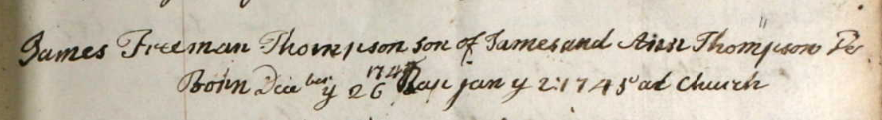 James Freeman Thompson son of James and Ann Thompson
Born Decber y 26 174 Bap Jan y 2: 1745 at Church